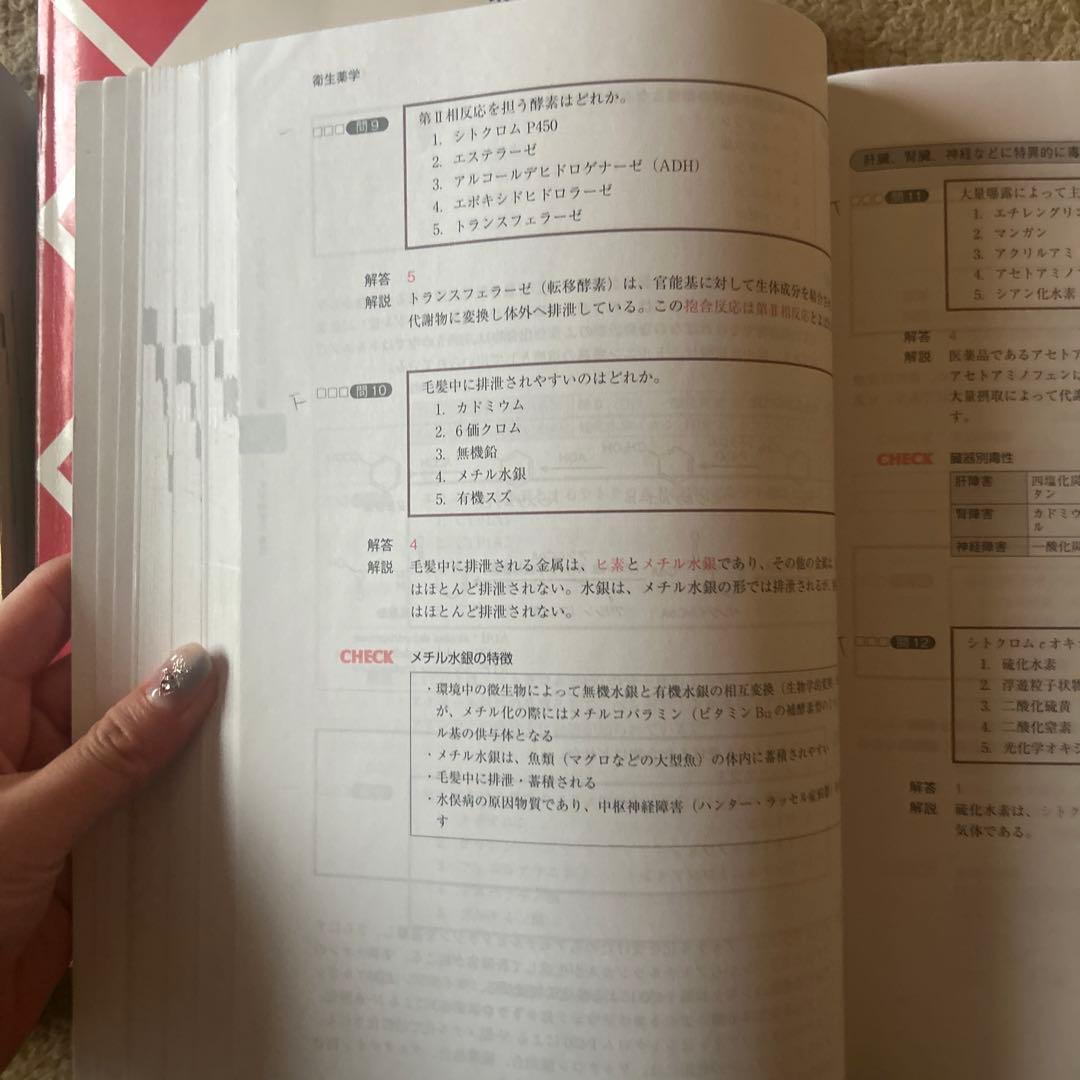 衛生薬学
□□□ 問9
第Ⅱ相反応を担う酵素はどれか。
1. シトクロム P450
2. エステラーゼ
3. アルコールデヒドロゲナーゼ（ADH）
4. エポキシドヒドロラーゼ
5. トランスフェラーゼ
解答 5
解説 トランスフェラーゼ（転移酵素）は、官能基に対して生体成分を結合
代謝物に変換し体外へ排泄している。この抱合反応は第Ⅱ相反応と
□□□ 問10
毛髪中に排泄されやすいのはどれか。
1. カドミウム
2. 6価クロム
3. 無機鉛
4. メチル水銀
5. 有機スズ
解答 4
解説 毛髪中に排泄される金属は、ヒ素とメチル水銀であり、その他の金属
はほとんど排泄されない。水銀は、メチル水銀の形では排泄されるが、
はほとんど排泄されない。
CHECK メチル水銀の特徴
・環境中の微生物によって無機水銀と有機水銀の相互変換（生物学的変換
が、メチル化の際にはメチルコバラミン（ビタミンB₁₂の補酵素型
ル基の供与体となる
・メチル水銀は、魚類（マグロなどの大型魚）の体内に蓄積されやすい
・毛髪中に排泄・蓄積される
・水俣病の原因物質であり、中枢神経障害（ハンター・ラッセル
す
肝臓、腎臓、神経などに特異的に毒
□□□ 問11
大量曝露によって主
1. エチレングリコ
2. マンガン
3. アクリルアミ
4. アセトアミノ
5. シアン化水素
解答 4
解説 医薬品であるアセトア
アセトアミノフェンに
大量摂取によって代謝
す。
CHECK 臓器別毒性
肝障害 四塩化炭
タン
腎障害 カドミウ
ル
神経障害 一酸化炭
□□□ 問12
シトクロム c オキ
1. 硫化水素
2. 浮遊粒子状物
3. 二酸化硫黄
4. 二酸化窒素
5. 光化学オキシ
解答 1
解説 硫化水素は、シトク
気体である。